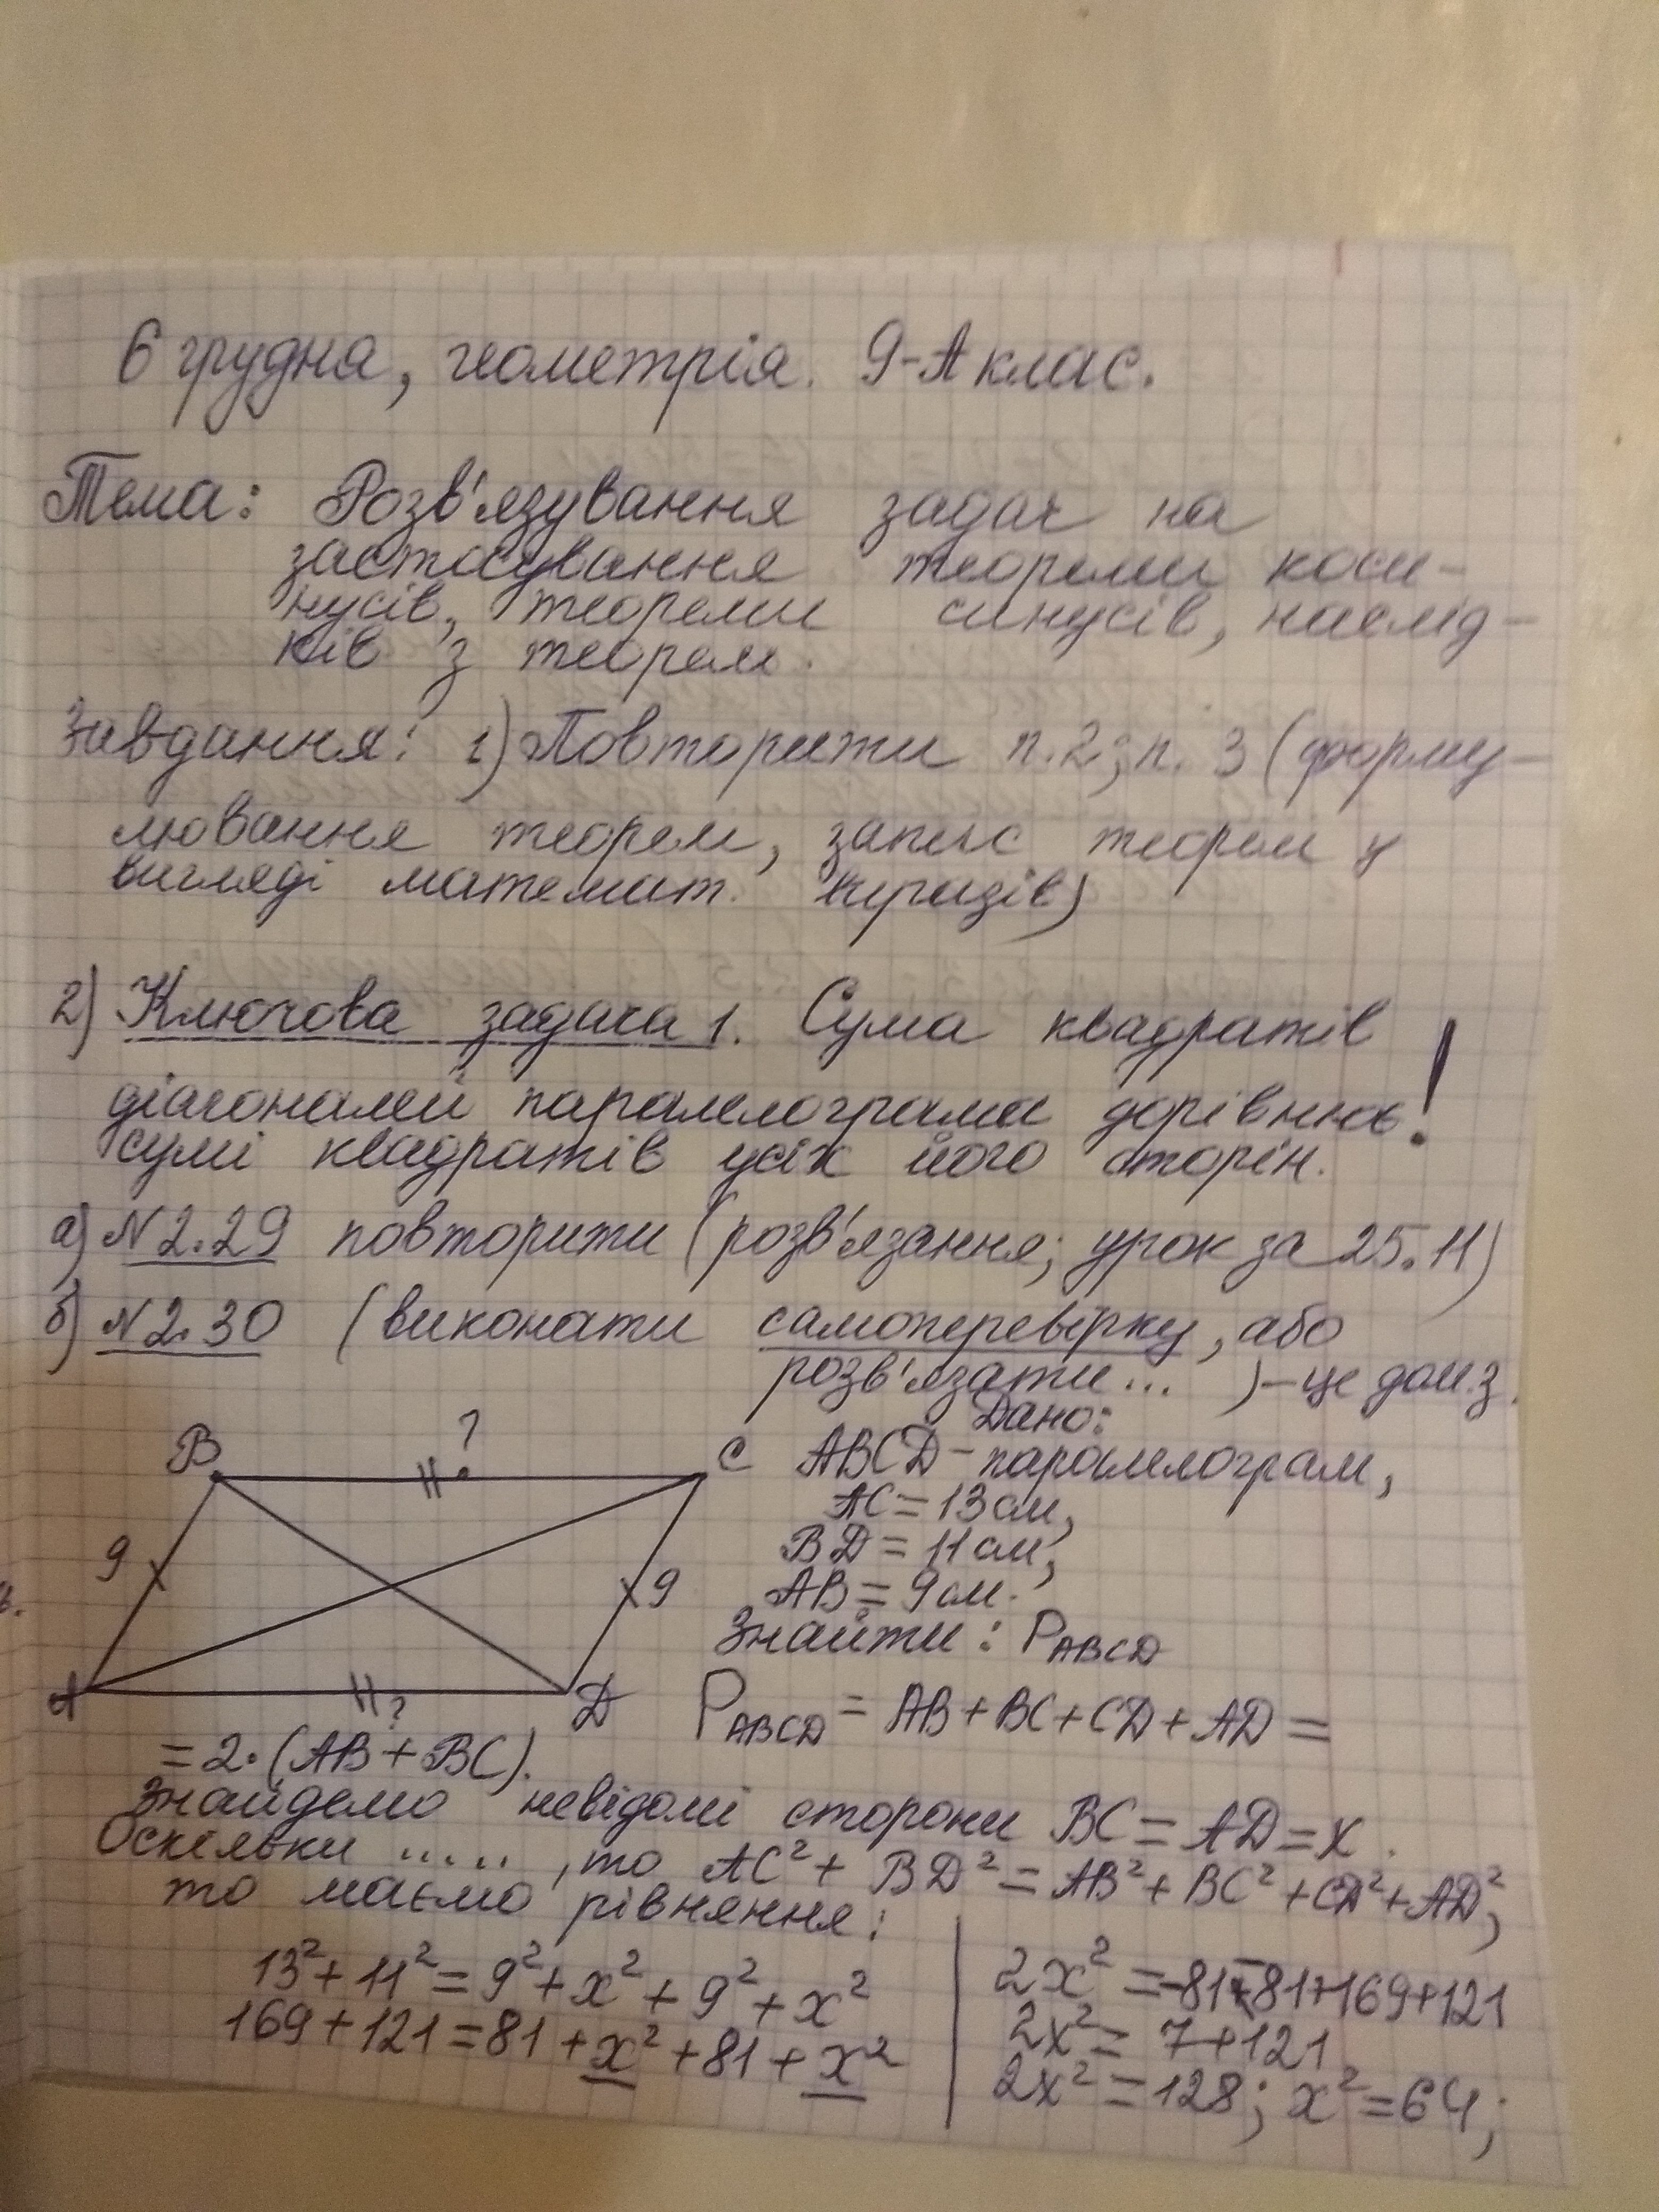 6 грудня, геометрія. 9-А клас.
Тема: Розв'язування задач на
застосування теореми коси-
нусів, теореми синусів, наслід-
ків з теорем.
Завдання: 1) Повторити п.2; п. 3 (форму-
лювання теорем, запис теорем у
вигляді математ. виразів)
2) Ключова задача 1. Сума квадратів
діагоналей паралелограма дорівнює !
сумі квадратів усіх його сторін.
а) №2.29 повторити (розв'язання; урок за 25.11)
б) №2.30 (виконати самоперевірку, або
розв'язати... ) – це дом.з.
Дано:
B ? C ABCD – паралелограм,
AC = 13 см,
BD = 11 см,
9 9 AB = 9 см.
Знайти: P_ABCD
A ? D P_ABCD = AB + BC + CD + AD =
= 2·(AB + BC).
Знайдемо невідомі сторони BC = AD = x.
Оскільки ....., то AC² + BD² = AB² + BC² + CD² + AD²,
то маємо рівняння:
13² + 11² = 9² + x² + 9² + x²
169 + 121 = 81 + x² + 81 + x²
2x² = -81-81+169+121
2x² = 7+121
2x² = 128; x² = 64;